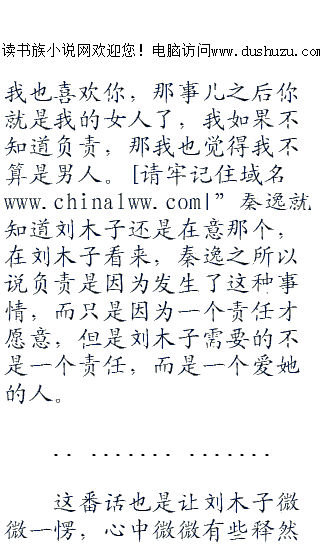 读书族小说网欢迎您！电脑访问www.dushuzu.com
我也喜欢你，那事儿之后你
就是我的女人了，我如果不
知道负责，那我也觉得我不
算是男人。[请牢记住域名
www.chinalww.com|”秦逸就
知道刘木子还是在意那个，
在刘木子看来，秦逸之所以
说负责是因为发生了这种事
情，而只是因为一个责任才
愿意，但是刘木子需要的不
是一个责任，而是一个爱她
的人。
.. ....... .......
这番话也是让刘木子微
微一愣，心中微微有些释然